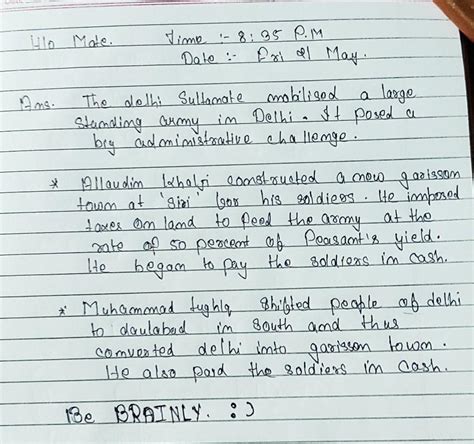 H10 Mate. Time :- 8:35 P.M
Date :- Fri 21 May.
Ans. The delhi Sultanate mobilised a large
standing army in Delhi. It posed a
big administrative challenge.
* Allaudin khalji constructed a new garisson
town at 'siri' for his soldiers. He imposed
taxes on land to feed the army at the
rate of 50 percent of Peasant's yield.
He began to pay the soldiers in cash.
* Muhammad tughlq shifted people of delhi
to daulabad in south and thus
converted delhi into garisson town.
He also paid the soldiers in cash.
Be BRAINLY. :)